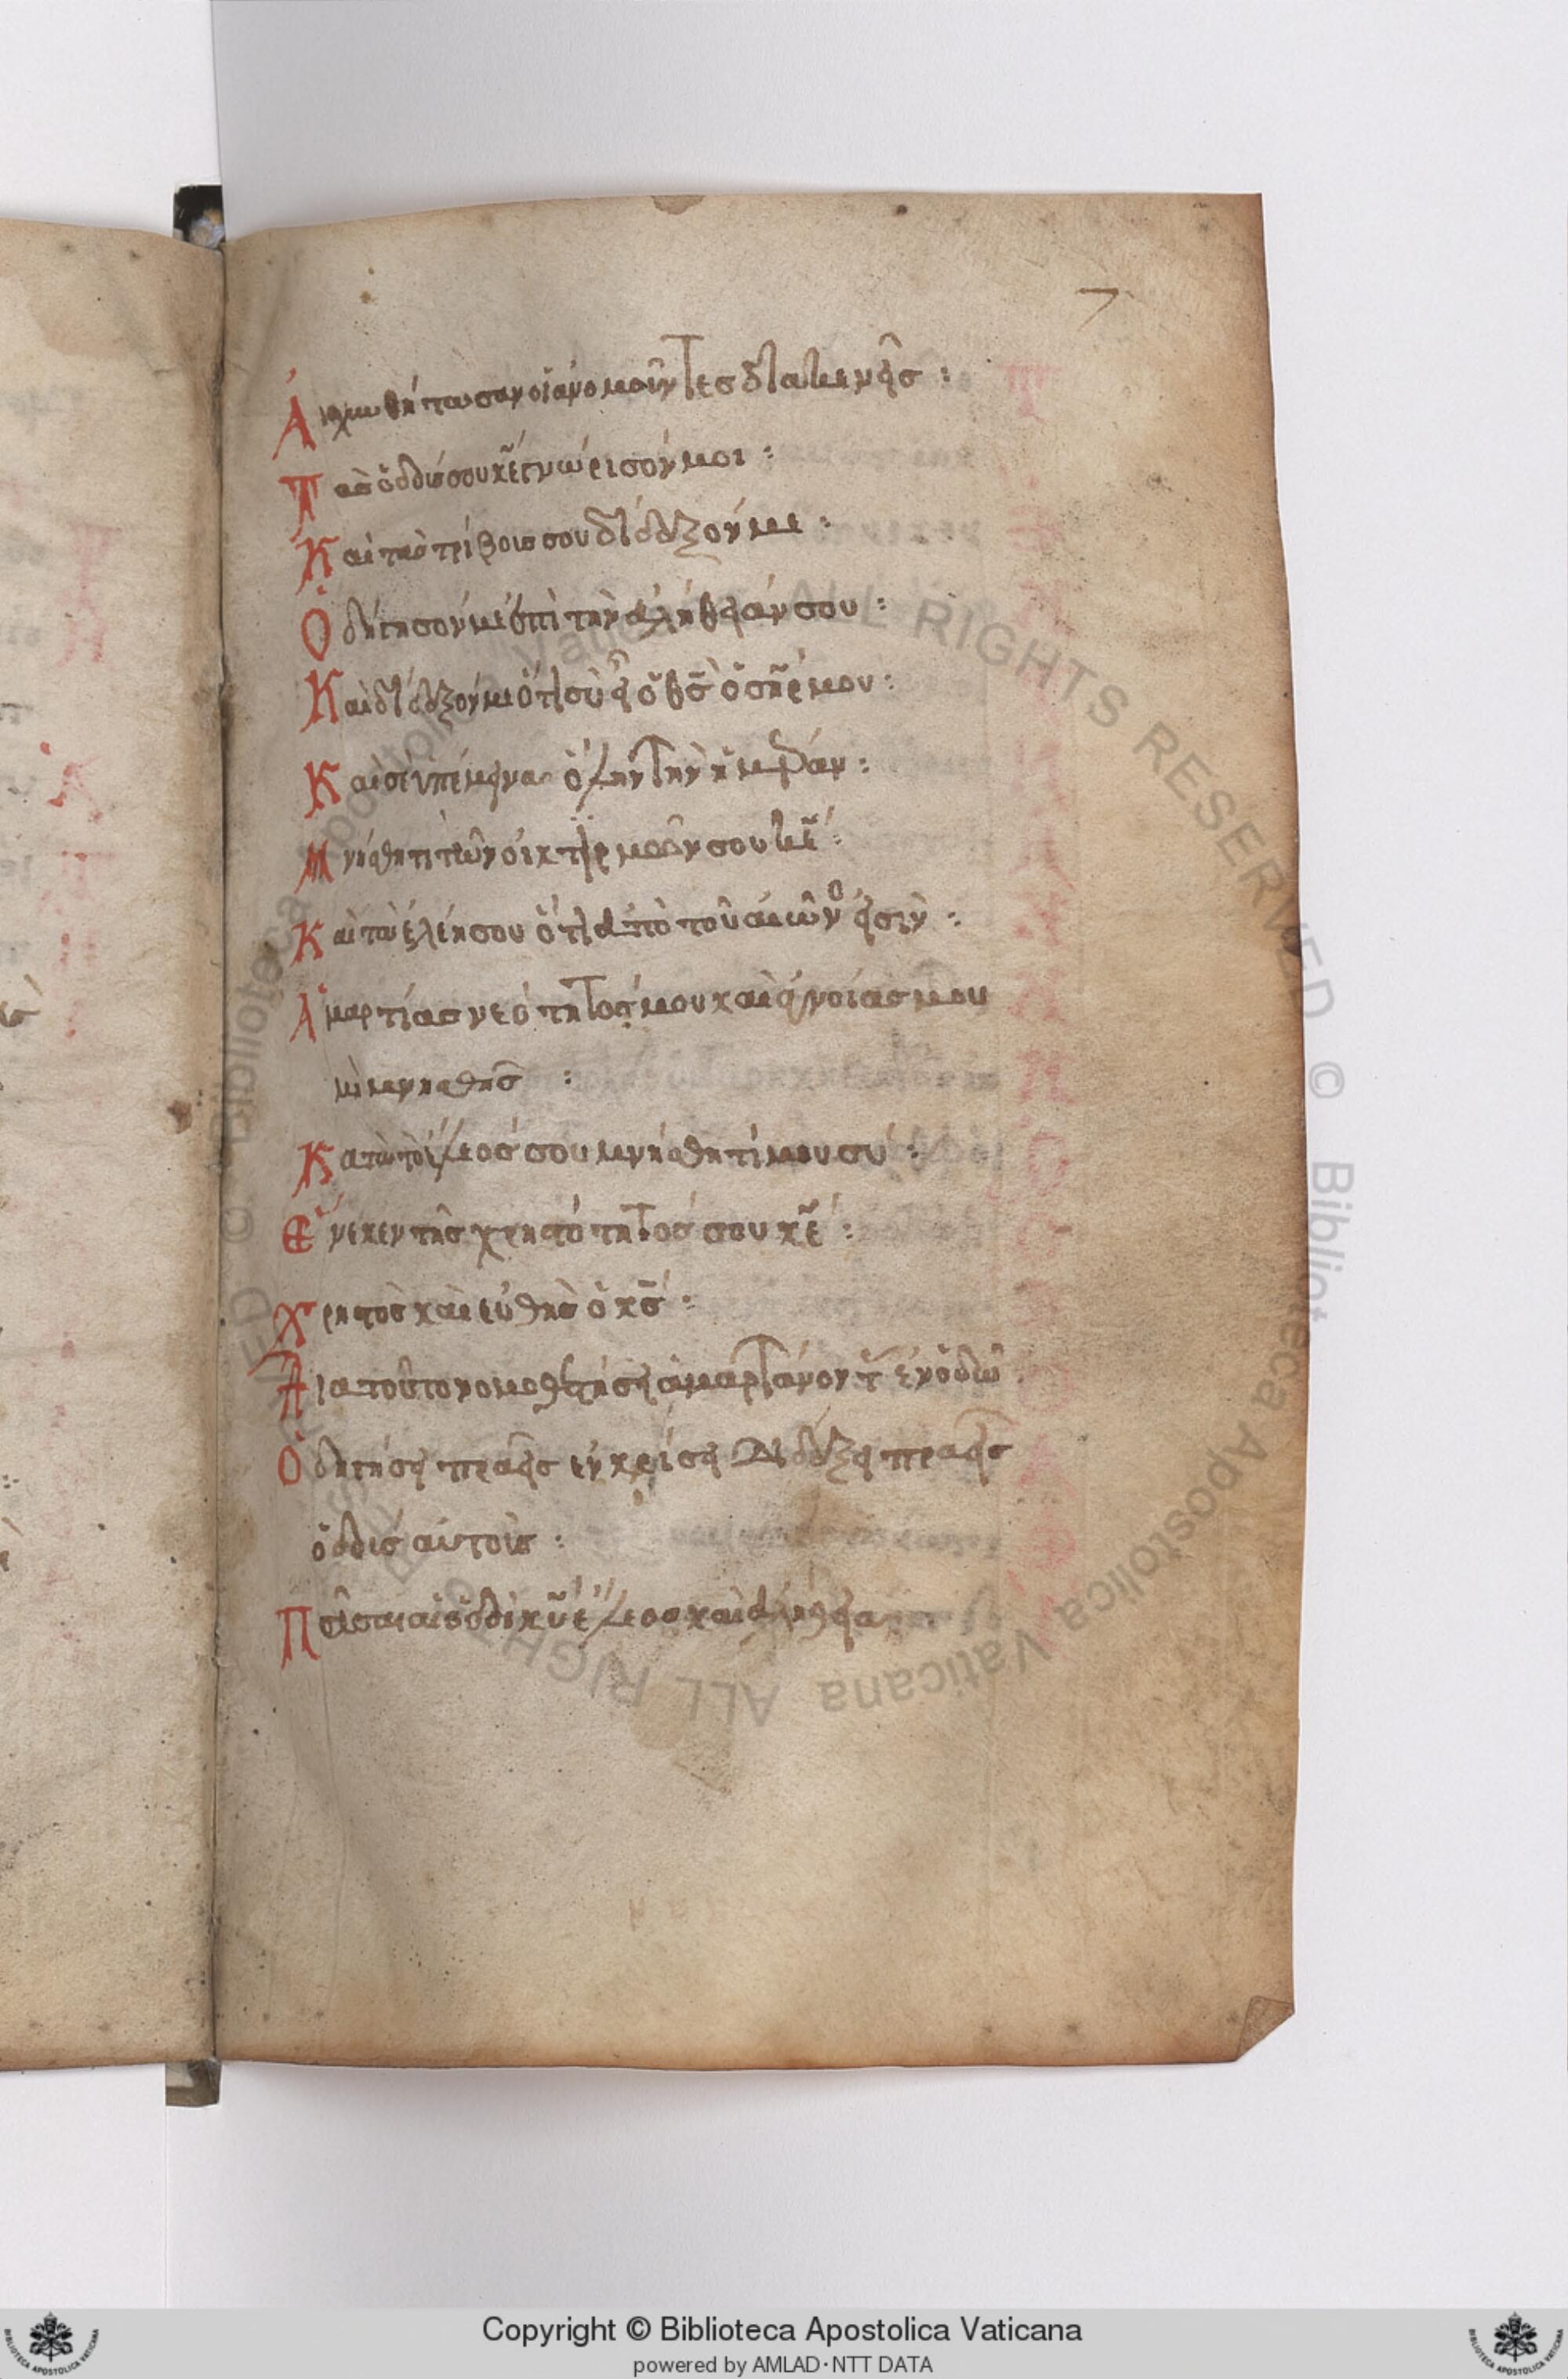 Αἰσχυνθήτωσαν οἱ ἀνομοῦντες διακενῆς :
Τὰς ὁδούς σου κε γνώρισόν μοι :
Καὶ τὰς τρίβους σου δίδαξόν με :
Ὁδήγησόν με ἐπὶ τὴν ἀλήθειάν σου :
Καὶ δίδαξόν με ὅτι σὺ εἶ ὁ θς ὁ σηρ μου :
Καὶ σὲ ὑπέμεινα ὅλην τὴν ἡμέραν :
Μνήσθητι τῶν οἰκτιρμῶν σου κε :
Καὶ τὰ ἐλέη σου ὅτι ἀπὸ τοῦ αἰῶνο εἰσὶν :
Ἁμαρτίας νεότητός μου καὶ ἀγνοίας μου
μὴ μνησθῆς :
Κατὰ τὸ ἔλεός σου μνήσθητί μου σύ :
Ἕνεκεν τῆς χρηστότητός σου κε :
Χρηστὸς καὶ εὐθὴς ὁ κς :
Διατοῦτο νομοθετήσει ἁμαρτάνοντ ἐν ὁδῶ
Ὁδηγήσει πραεῖς ἐν κρίσει διδάξει πραεῖς
ὁδοὺς αὐτοῦ :
Πᾶσαι αἱ ὁδοὶ κυ ἔλεος καὶ ἀλήθεια
ALL RIGHTS RESERVED © Biblioteca Apostolica Vaticana
Copyright © Biblioteca Apostolica Vaticana
powered by AMLAD·NTT DATA